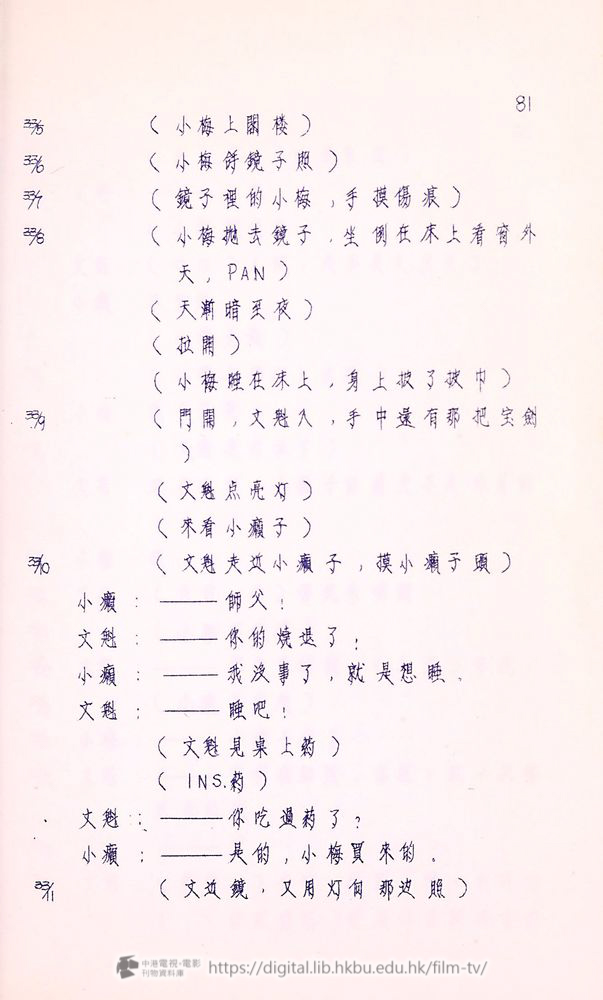 81
33/5 （小梅上閣楼）
33/6 （小梅餀鏡子照）
33/7 （鏡子裡的小梅，手摸傷痕）
33/8 （小梅拋去鏡子，坐倒在床上看窗外
天，PAN）
（天漸暗至夜）
（拉開）
（小梅睡在床上，身上披了披巾）
33/9 （門開，文魁入，手中還有那把宝劍
）
（文魁点亮灯）
（來看小癩子）
33/10 （文魁走边小癩子，摸小癩子頭）
小癩：——師父！
文魁：——你的燒退了！
小癩：——我沒事了，就是想睡、
文魁：——睡吧！
（文魁見桌上葯）
（INS.葯）
文魁：——你吃過葯了？
小癩：——是的，小梅買來的。
33/11 （文边鏡，又用灯向那边照）
中港電視·電影
刊物資料庫
https://digital.lib.hkbu.edu.hk/film-tv/